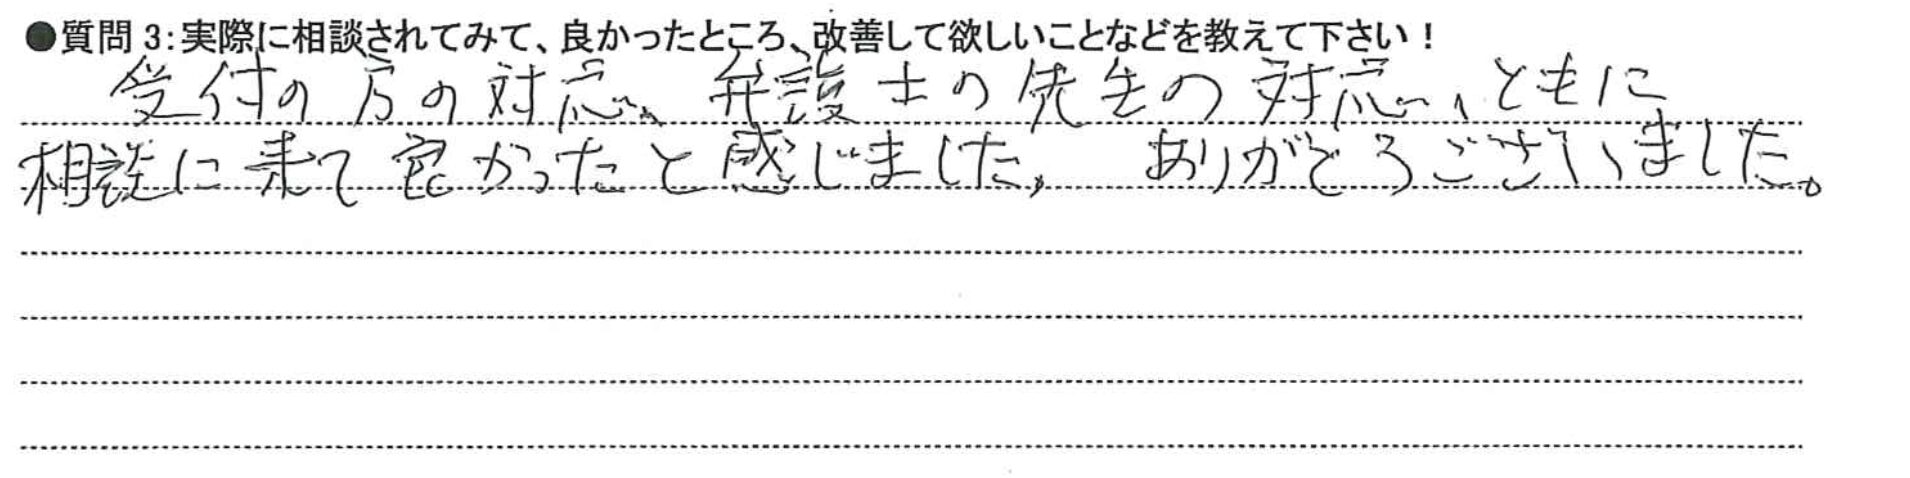 ●質問 3:実際に相談されてみて、良かったところ、改善して欲しいことなどを教えて下さい！
受付の方の対応、弁護士の先生の対応、ともに
相談に来て良かったと感じました。ありがとうございました。